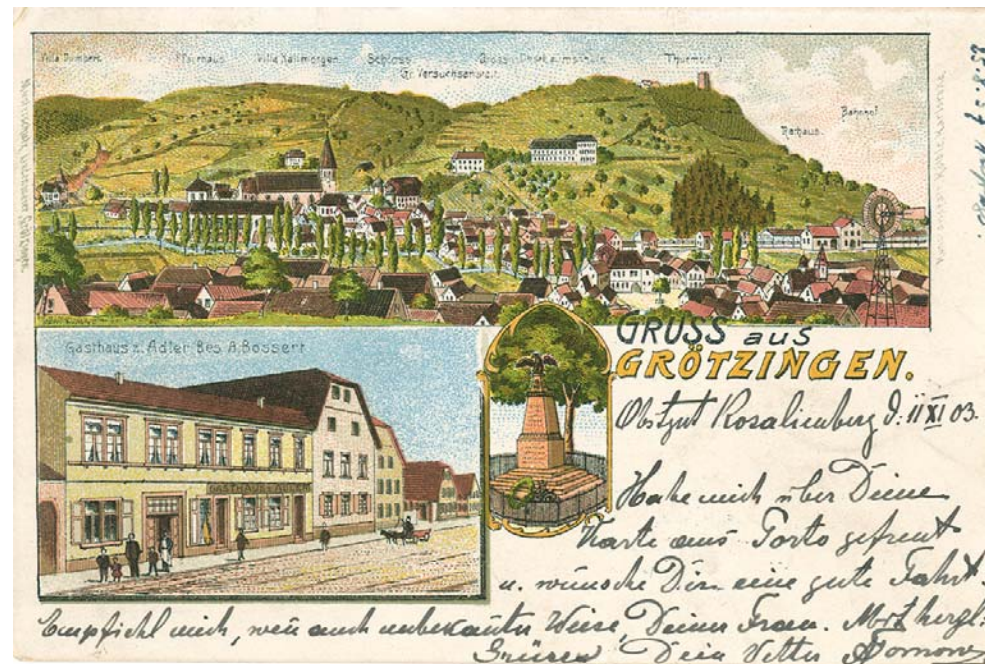 Villa Gumbert Pfarrhaus Villa Kallmorgen Schloss Gr. Versuchsanstalt Gross. Obstbaumschule Thurmberg
Rathaus. Bahnhof
Gasthaus z. Adler Bes. A. Bossert
GASTHAUS Z. ADLER
GRUSS aus
GRÖTZINGEN.
Obstgut Rosalienberg d. 11 XI 03.
Habe mich über Deine
Karte aus Porto gefreut
u. wünsche Dir eine gute Fahrt.
Empfiehl mich, wenn auch unbekannter Weise, Deiner Frau. Mit herzl.
Grüssen Dein Vetter